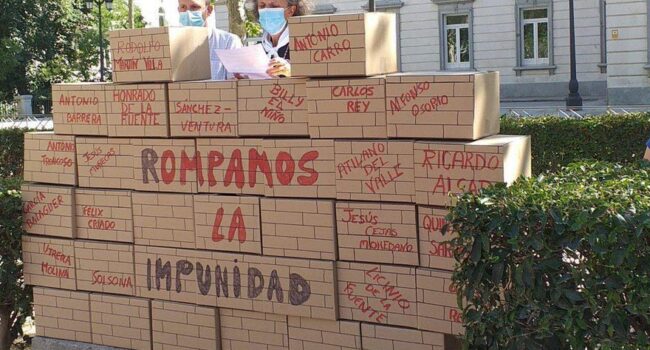 RODOLFO
MARTIN VILLA
ANTONIO
CARRO
ANTONIO
BARRERA
HONRADO
DE LA
FUENTE
SANCHEZ-
VENTURA
BILLY
EL
NIÑO
CARLOS
REY
ALFONSO
OSORIO
ANTONIO
TRONCOSO
JESÚS
ROMPAMOS
ATILANO
DEL
VALLE
RICARDO
GARCIA
FELIX
CRIADO
LA
JESÚS
CEJAS
MOHEDANO
UTRERA
MOLINA
SOLSONA
IMPUNIDAD
LICINIO
DE LA
FUENTE